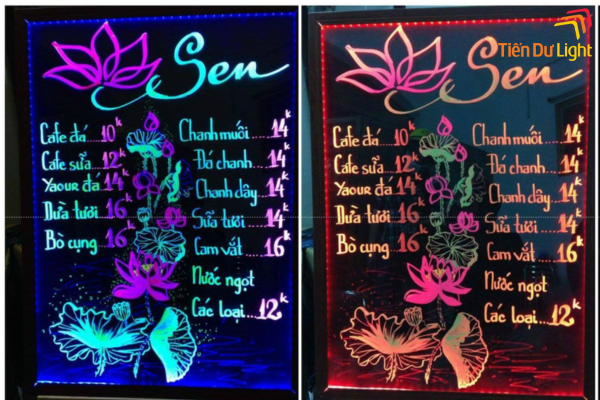 Sen
Cafe đá 10k
Cafe sữa 12k
Yaour đá 14k
Dừa tươi 16k
Bò cụng 16k
Chanh muối....14k
Đá chanh.....14k
Chanh dây....14k
Sữa tươi.....14k
Cam vắt.....16k
Nước ngọt
Các loại...12k
Tiến Dư Light
Sen
Cafe đá 10k
Cafe sữa 12k
Yaour đá 14k
Dừa tươi 16k
Bò cụng 16k
Chanh muối....14k
Đá chanh.....14k
Chanh dây....14k
Sữa tươi.....14k
Cam vắt.....16k
Nước ngọt
Các loại...12k